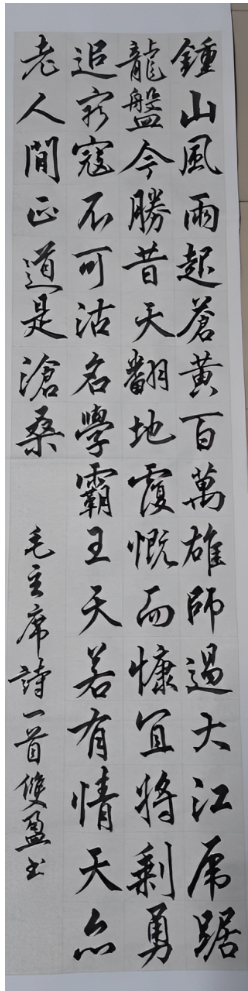 鍾山風雨起蒼黃百萬雄師過大江虎踞
龍盤今勝昔天翻地覆慨而慷宜將剩勇
追窮寇不可沽名學霸王天若有情天亦
老人間正道是滄桑
毛主席詩一首雙盈书